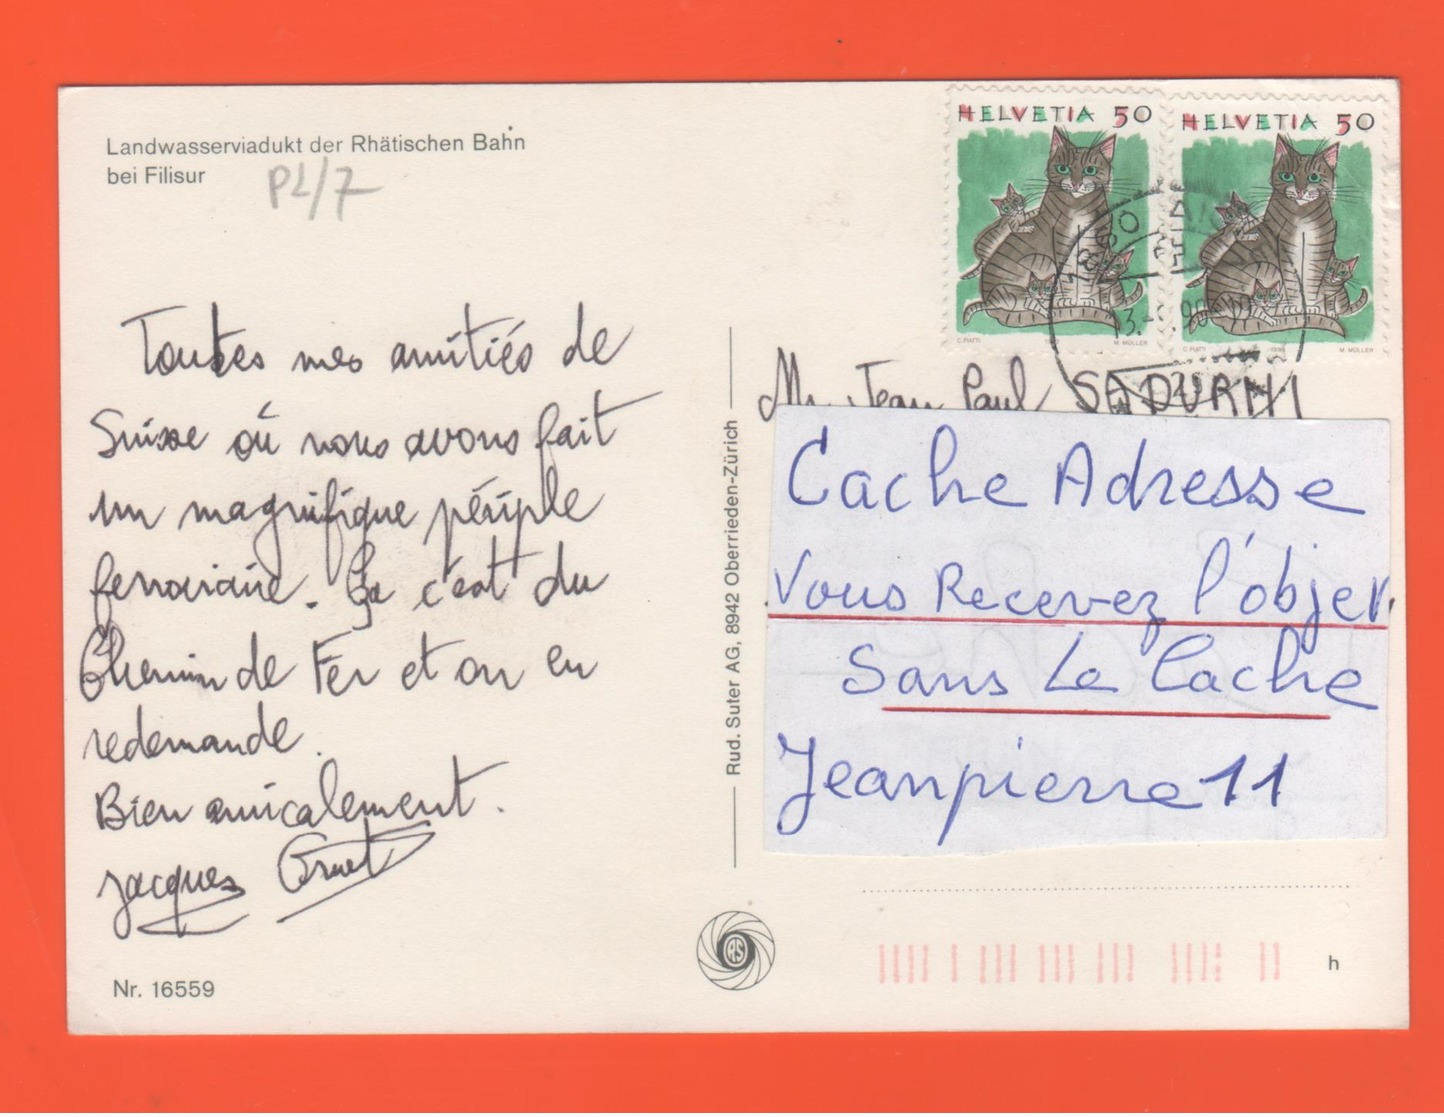 Landwasserviadukt der Rhätischen Bahn
bei Filisur
PL/7
HELVETIA 50
C. PIATTI M. MÜLLER
HELVETIA 50
C. PIATTI 1990 M. MÜLLER
Toutes mes amitiés de
Suisse où nous avons fait
un magnifique périple
ferroviaire. Ça c'est du
Chemin de Fer et on en
redemande.
Bien amicalement.
Jacques
Nr. 16559
Rud. Suter AG, 8942 Oberrieden-Zürich
RS
Mr Jean Paul SADURNI
Cache Adresse
Vous Recevez l'objet
Sans Le Cache
Jeanpierre 11
h